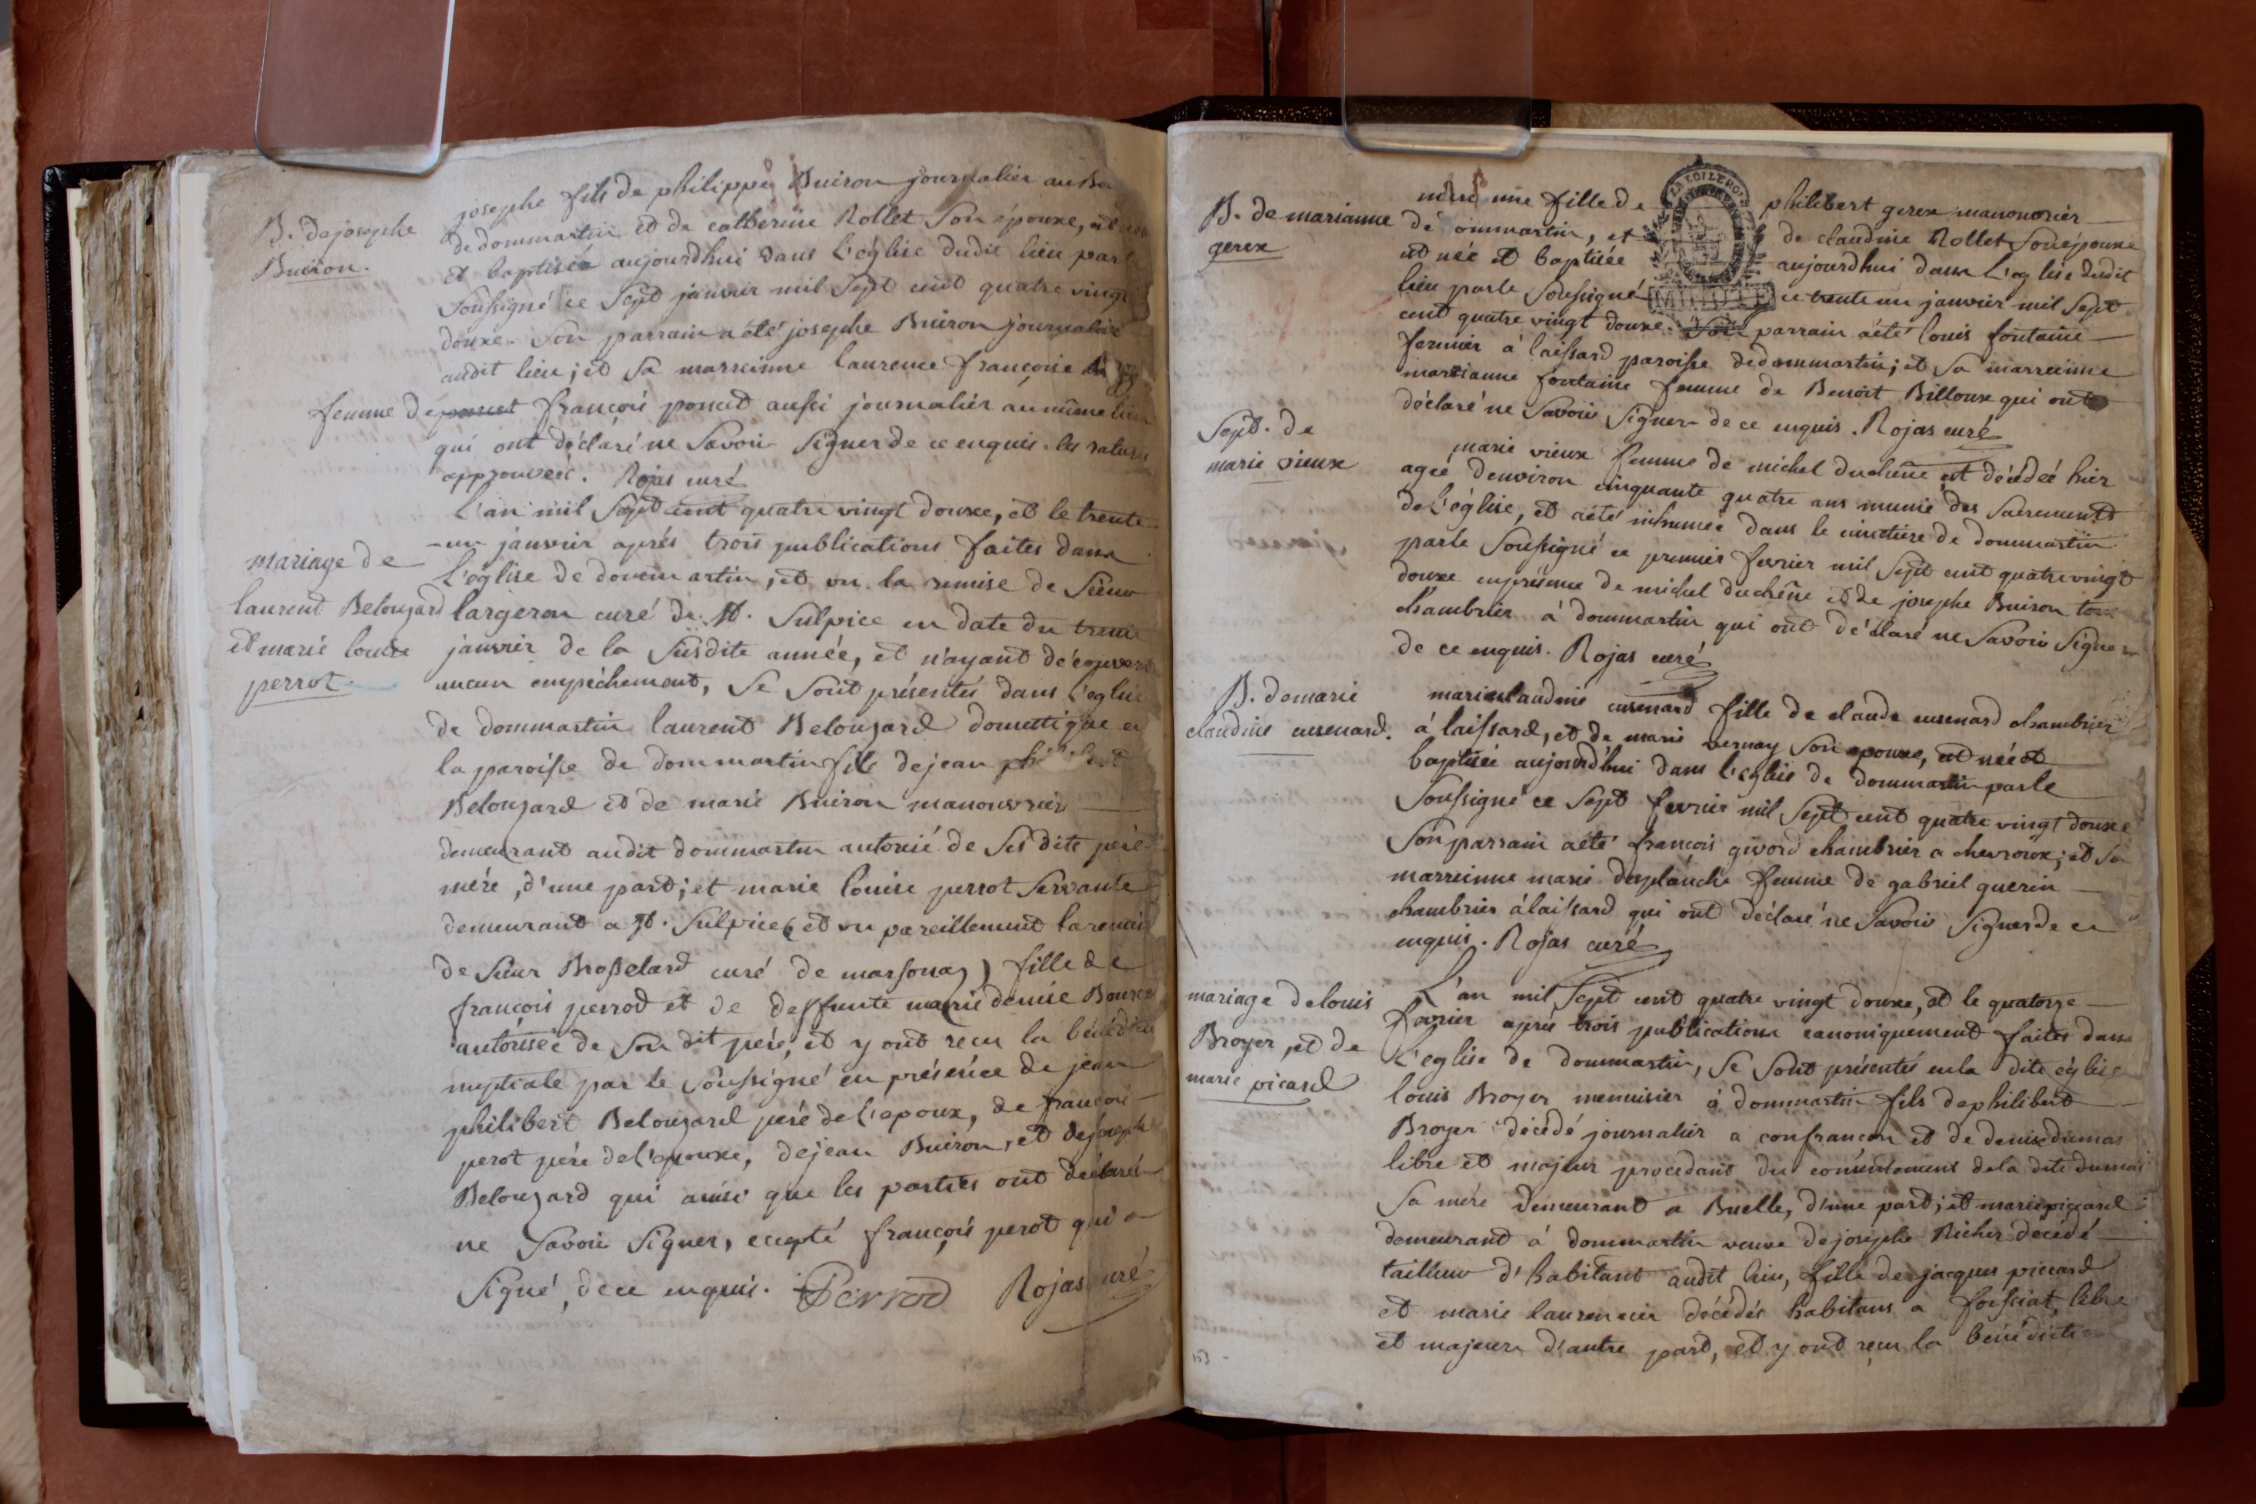 B. de josephe
Buiron.
josephe fils de philippe Buiron journalier au
de dommartin et de catherine Rollet son épouse, est
et baptiséé aujourdhui dans l'église dudit lieu par
soussigné ce sept janvier mil sept cent quatre vingt
douze. son parrain a été josephe Buiron journalier
audit lieu; et sa marreinne laurence françoise
femme de poncet françois poncet aussi journalier au même lieu
qui ont déclaré ne savoir signer de ce enquis. les ratures
approuveés. Rojas curé
mariage de
laurent Belouzard
et marie louise
perrot.
L'an mil sept cent quatre vingt douze, et le trente
-un janvier aprés trois publications faites dans
l'église de dommartin, et vu la remise de sieur
largeron curé de st. Sulpice en date du trente
janvier de la susdite année, et n'ayant découvert
aucun empéchement, se sont présentés dans l'église
de dommartin laurent Belouzard domestique en
la paroisse de dommartin fils de jean
Belouzard et de marie Buiron manouvrier
demeurant audit dommartin autorisé de ses dits pére
mére, d'une part; et marie louise perrot servante
demeurant a st. Sulpice (et vu pareillement la remise
de sieur Brosselard curé de marsonas) fille de
françois perrod et de deffunte marie denise
autorisée de son dit pére, et y ont reçu la bénédiction
nuptiale par le soussigné en présence de jean
philibert Belouzard pére de l'epoux, de françois
perot pére de l'epouse, de jean Buiron, et de josephe
Belouzard qui ainsi que les parties ont déclaré
ne savoir signer, excepté françois perot qui a
signé, de ce enquis. Perrod Rojas curé
B. de marianne
gerex
une fille de philibert gerex manouvrier
dé ommartin, et de claudine Rollet son épouse
est née et baptisée aujourdhui dans l'eglise dudit
lieu par le soussigné MINUTE ce trente un janvier mil sept
cent quatre vingt douze. son parrain a été louis fontaine
fermier à laissard paroisse de dommartin; et sa marreinne
marianne fontaine femme de Benoit Billoux qui ont
déclaré ne savoir signer de ce enquis. Rojas curé
Sept. de
marie vieux
marie vieux femme de michel duchêne est décédeé hier
ageé d'environ cinquante quatre ans munie des sacrements
de l'église, et a été inhumée dans le cimetiere de dommartin
par le soussigné ce premier fevrier mil sept cent quatre vingt
douze en présence de michel duchêne et de josephe Buiron tous
chambrier à dommartin qui ont déclaré ne savoir signer
de ce enquis. Rojas curé
B. de marie
claudine cusenard.
marie claudine cusenard fille de claude cusenard chambrier
à laissard, et de marie vernay son epouse, est née et
baptiséé aujourd'hui dans l'église de dommartin par le
soussigné ce sept fevrier mil sept cent quatre vingt douze
son parrain a été françois givord chambrier a chevroux; et sa
marreinne marie desplanche femme de gabriel guerin
chambrier à laissard qui ont déclaré ne savoir signer de ce
enquis. Rojas curé
mariage de louis
Broyer, et de
marie picard
L'an mil sept cent quatre vingt douze, et le quatorze
fevrier aprés trois publications canoniquement faites dans
l'eglise de dommartin, se sont présentés en la dite église
louis Broyer menuisier à dommartin fils de philibert
Broyer décédé journalier a confrancon et de denise dumas
libre et majeur procedant du consentement de la dite dumas
sa mére demeurant a Buelle, d'une part; et marie picard
demeurant à dommartin veuve de josephe Richer décédé
tailleur d'habitant audit lieu, fille de jacques piccard
et marie laurencin décédés habitans a foissiat, libre
et majeure d'autre part, et y ont reçu la bénédiction